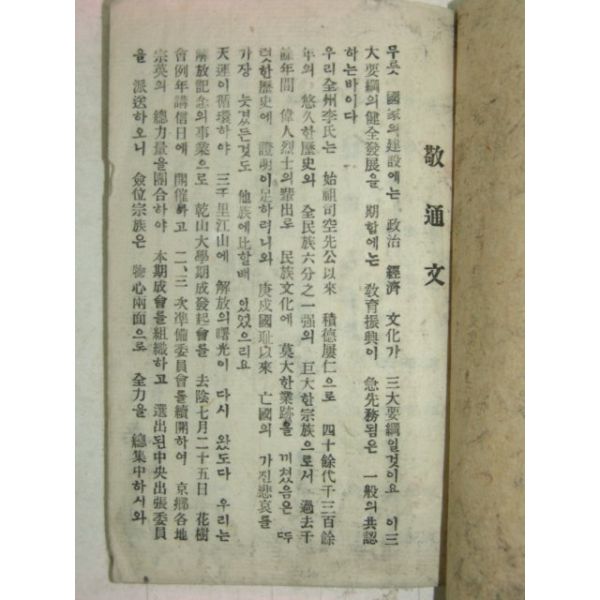 敬通文
무릇 國家의建設에는 政治 經濟 文化가 三大要綱일것이요 이三
大要綱의健全發展을 期함에는 敎育振興이 急先務됨은 一般의共認
하는바이다
우리全州李氏는 始祖司空先公以來 積德屢仁으로 四十餘代千三百餘
年의 悠久한歷史와 全民族六分之一强의 巨大한宗族으로서 過去千
餘年間 偉人烈士의輩出로 民族文化에 莫大한業跡을 끼쳤음은 뚜
렷한歷史에 證明이足하려니와 庚戌國耻以來 亡國의 가진悲哀를
가장 늣겼든것도 他族에比할배 있었으리요
天運이循環하야 三千里江山에 解放의曙光이 다시 왔도다 우리는
解放記念의事業으로 乾山大學期成發起會를 去陰七月二十五日 花樹
會例年講信日에 開催하고 二、三次準備委員會를續開하여 京鄕各地
宗英의 總力量을團合하야 本期成會를組織하고 選出된中央出張委員
을 派送하오니 僉位宗族은 物心兩面으로 全力을 總集中하시와